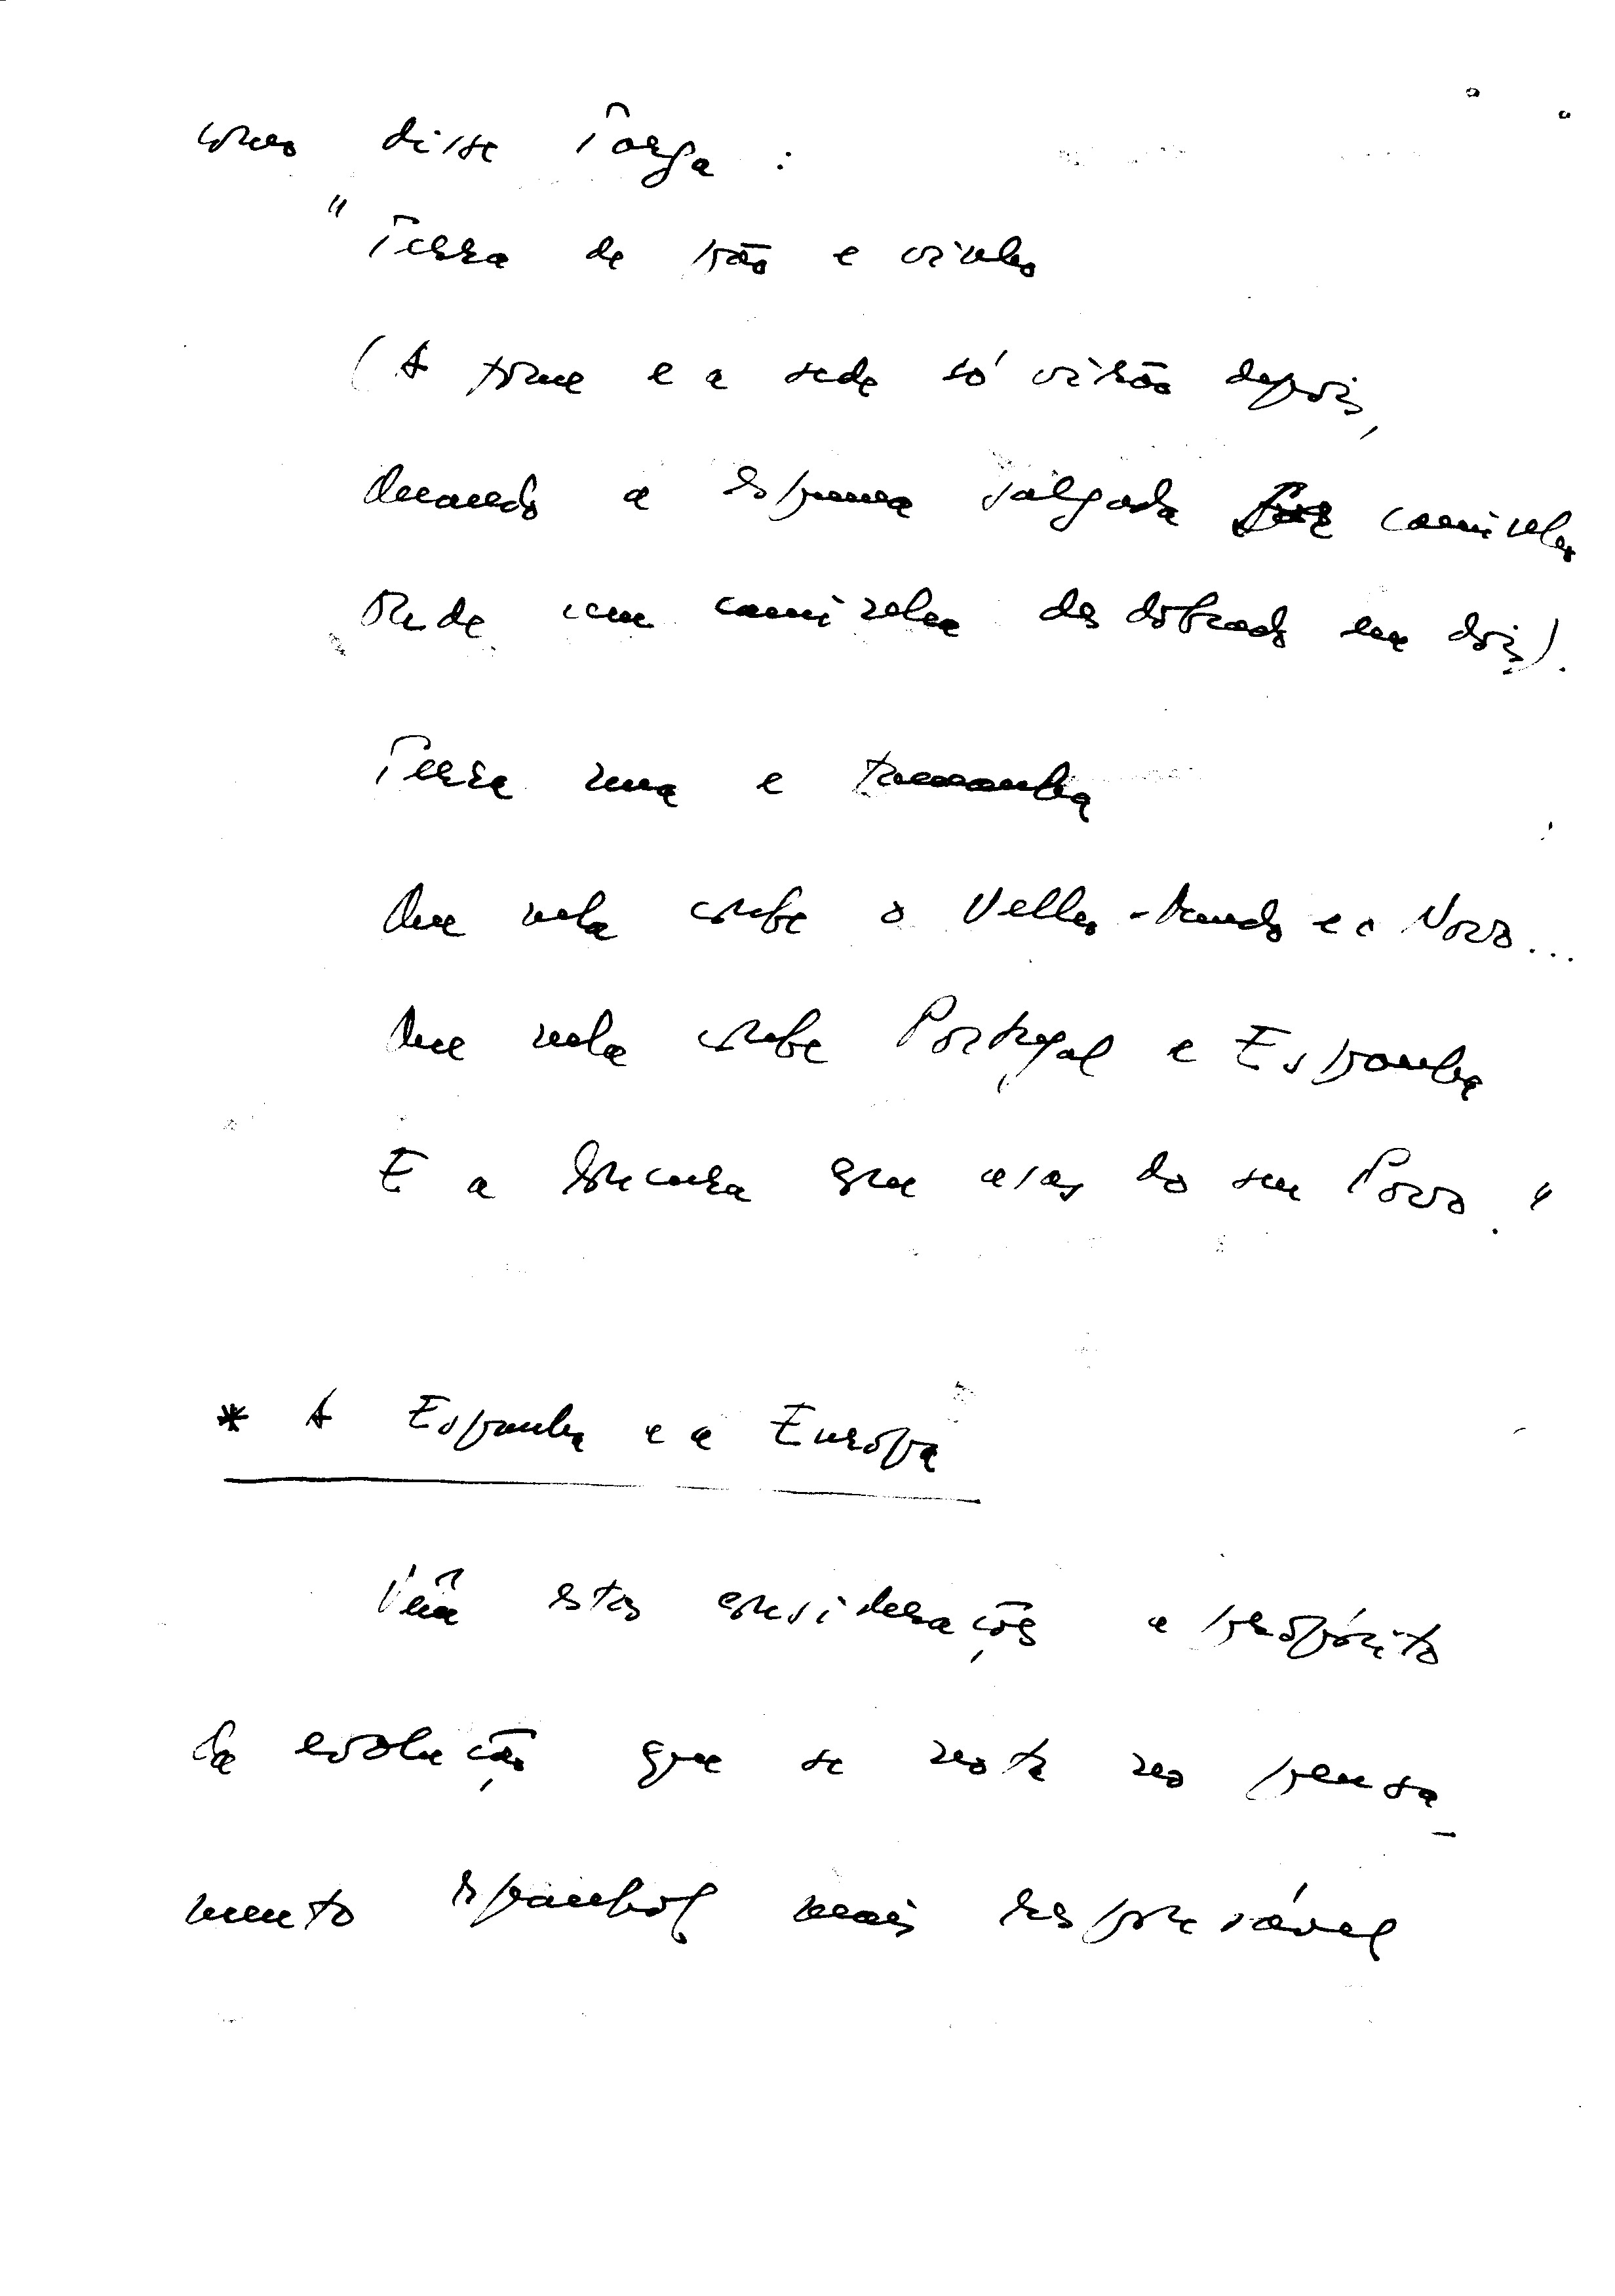 como disse Torga:
"Terra de pão e vinho
(A fome e a sede só virão depois,
Quando a espuma salgada for caminho
Onde um caminha desdobrado em dois).
Terra nua e tamanha
Que nela coube o Velho-Mundo e o Novo...
Que nela coube Portugal e Espanha
E a loucura com asas do seu Povo."
* A Espanha e a Europa
Vêm estas considerações a propósito
da evolução que se nota no pensa-
mento espanhol mais responsável